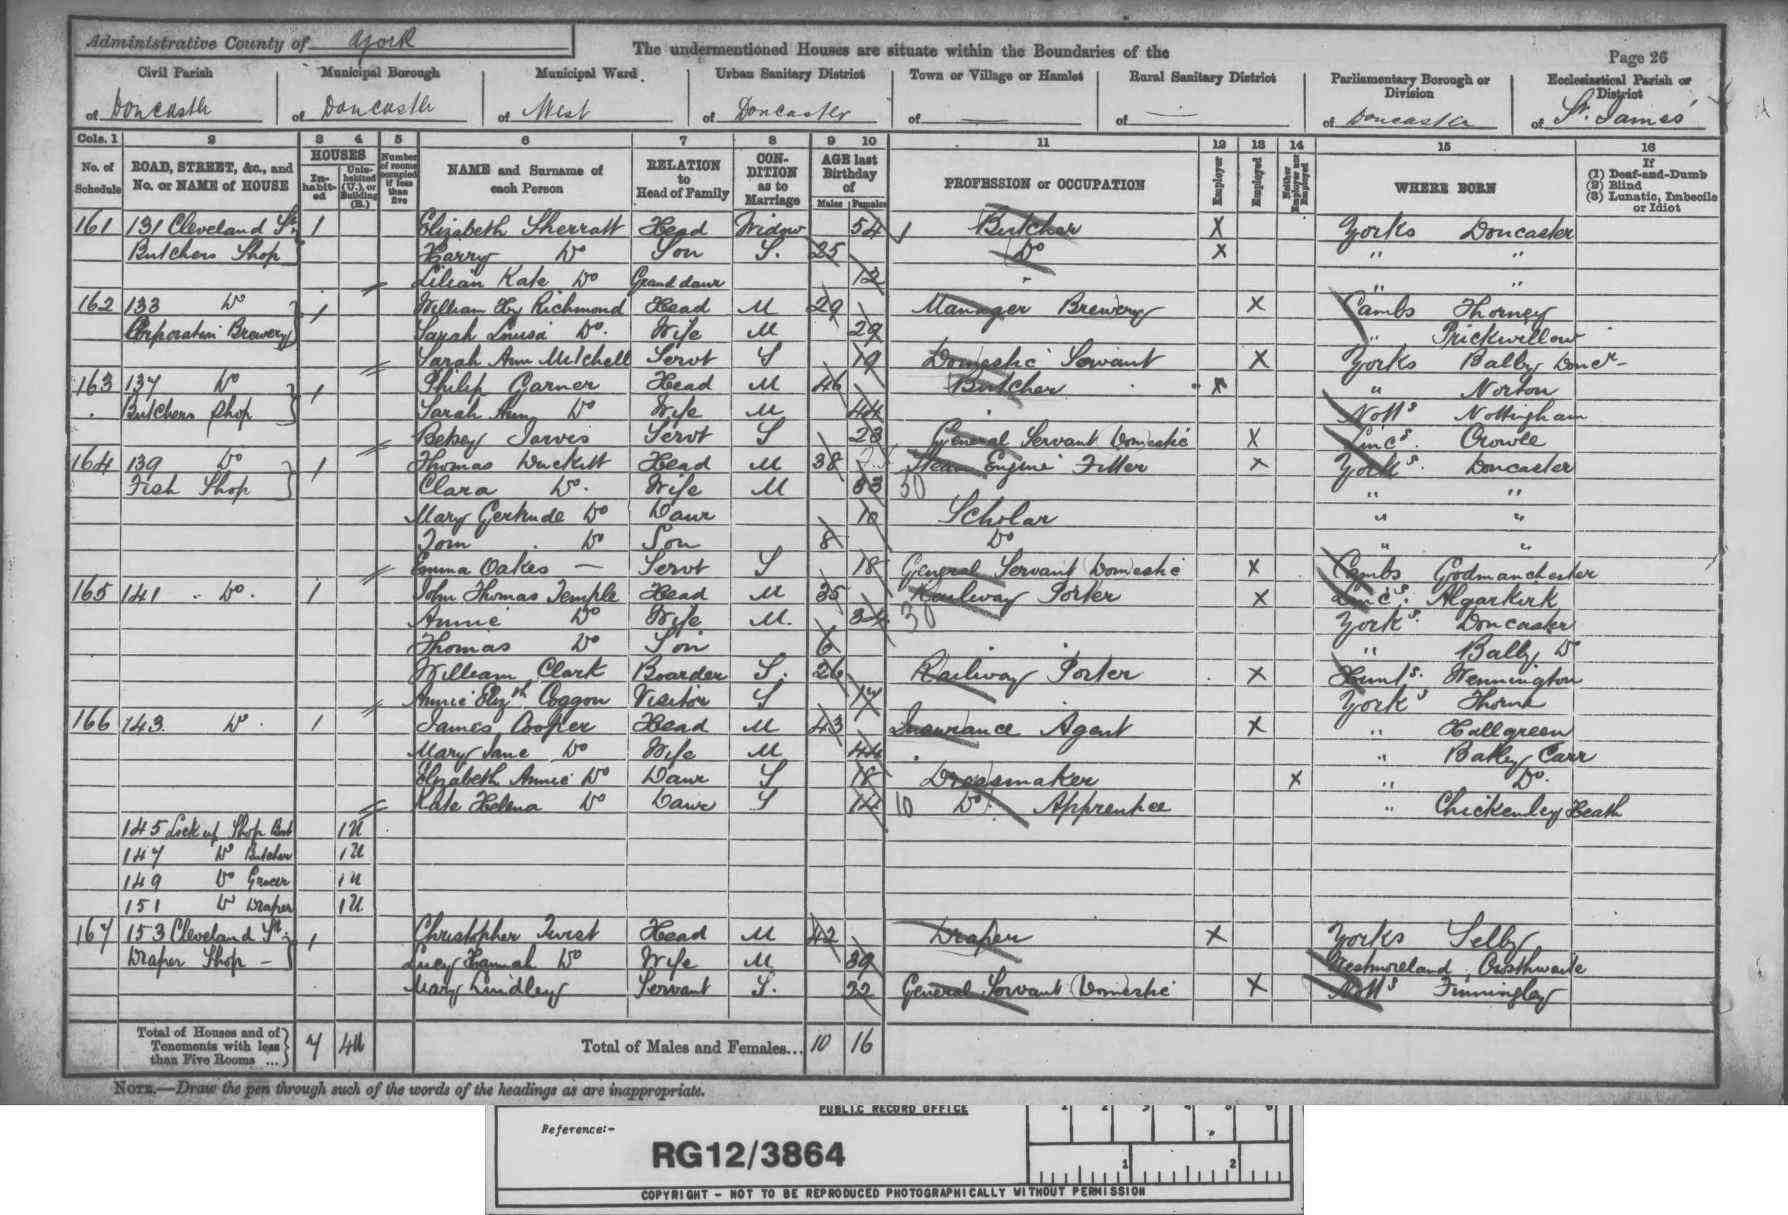 Administrative County of York
The undermentioned Houses are situate within the Boundaries of the
Page 26
Civil Parish Municipal Borough Municipal Ward Urban Sanitary District Town or Village or Hamlet Rural Sanitary District Parliamentary Borough or Division Ecclesiastical Parish or District
of Doncaster of Doncaster of West of Doncaster of — of — of Doncaster of St. James'
Cols. 1 2 3 4 5 6 7 8 9 10 11 12 13 14 15 16
No. of Schedule ROAD, STREET, &c., and No. or NAME of HOUSE HOUSES Inhabited Uninhabited (U.), or Building (B.) Number of rooms occupied if less than five NAME and Surname of each Person RELATION to Head of Family CONDITION as to Marriage AGE last Birthday of Males Females PROFESSION or OCCUPATION Employer Employed Neither Employer nor Employed WHERE BORN If (1) Deaf-and-Dumb (2) Blind (3) Lunatic, Imbecile or Idiot
161 131 Cleveland St. 1 Elizabeth Sherratt Head Widow 54 Butcher X Yorks Doncaster
Butchers Shop Harry Do Son S. 25 Do X " "
Lilian Kate Do Grand daur 12 " "
162 133 Do 1 William Hy Richmond Head M 29 Manager Brewery X Cambs Thorney
Corporation Brewery Sarah Louisa Do. Wife M 29 " Prickwillow
Sarah Ann Mitchell Servt S 19 Domestic Servant X Yorks Balby Doncr
163 137 Do 1 Philip Garner Head M 46 Butcher X " Norton
Butchers Shop Sarah Ann Do Wife M 44 Notts Nottingham
Betsey Jarvis Servt S 23 General Servant Domestic X Lincs. Crowle
164 139 Do 1 Thomas Duckitt Head M 38 Steam Engine Fitter X Yorks. Doncaster
Fish Shop Clara Do. Wife M 33 30 " "
Mary Gertrude Do Daur 10 Scholar " "
Tom Do Son 8 Do " "
Emma Oakes — Servt S 18 General Servant Domestic X Cambs Godmanchester
165 141 Do. 1 John Thomas Temple Head M 35 Railway Porter X Lincs. Algarkirk
Annie Do Wife M. 34 30 Yorks. Doncaster
Thomas Do Son 6 " Balby Do
William Clark Boarder S. 26 Railway Porter X Hunts. Wennington
Annie Elizth Coggon Visitor S 17 Yorks Thorne
166 143 Do. 1 James Cooper Head M 43 Insurance Agent X " Hallgreen
Mary Jane Do Wife M 44 " Batley Carr
Elizabeth Annie Do Daur S 18 Dressmaker X " Do.
Kate Helena Do Daur S 14 10 Do. Apprentice " Chickenley Heath
145 Lock up Shop 1 U
147 Do Butcher 1 U
149 Do Grocer 1 U
151 Do Draper 1 U
167 153 Cleveland St. 1 Christopher Twist Head M 42 Draper X Yorks Selby
Draper Shop — Lucy Hannah Do Wife M 39 Westmoreland Crosthwaite
Mary Lindley Servant S. 22 General Servant Domestic X Notts Finningley
Total of Houses and of Tenements with less than Five Rooms ... 7 4U Total of Males and Females... 10 16
NOTE.—Draw the pen through such of the words of the headings as are inappropriate.
PUBLIC RECORD OFFICE
Reference:-
RG12/3864
1 2 3 4 5 6
1 2
COPYRIGHT - NOT TO BE REPRODUCED PHOTOGRAPHICALLY WITHOUT PERMISSION